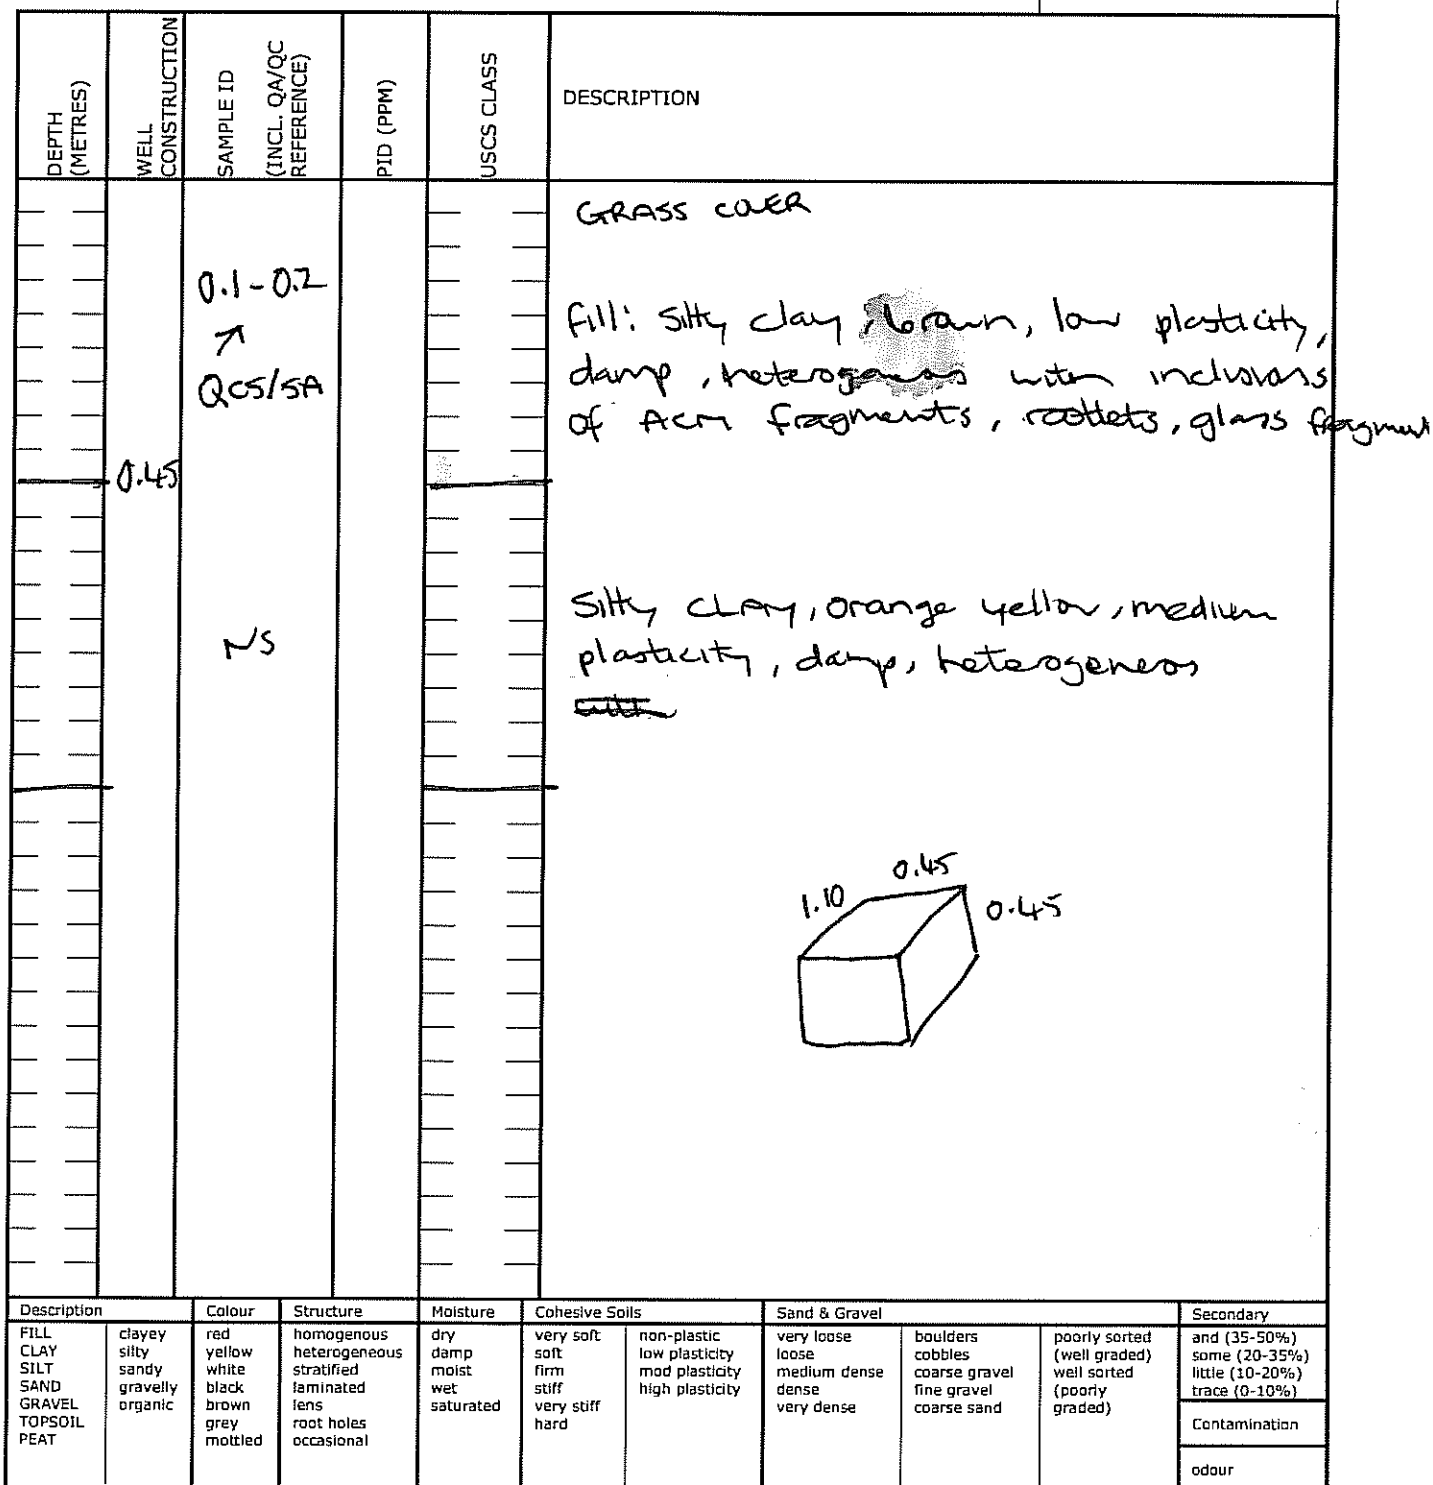 DEPTH (METRES)
WELL CONSTRUCTION
SAMPLE ID (INCL. QA/QC REFERENCE)
PID (PPM)
USCS CLASS
DESCRIPTION
GRASS COVER
0.1-0.2
QC5/5A
Fill: Silty clay, brown, low plasticity,
damp, heterogeneous with inclusions
of ACM fragments, rootlets, glass fragment
0.45
NS
Silty CLAY, orange yellow, medium
plasticity, damp, heterogeneos
1.10
0.45
0.45
Description
FILL
CLAY
SILT
SAND
GRAVEL
TOPSOIL
PEAT
clayey
silty
sandy
gravelly
organic
Colour
red
yellow
white
black
brown
grey
mottled
Structure
homogenous
heterogeneous
stratified
laminated
lens
root holes
occasional
Moisture
dry
damp
moist
wet
saturated
Cohesive Soils
very soft
soft
firm
stiff
very stiff
hard
non-plastic
low plasticity
mod plasticity
high plasticity
Sand & Gravel
very loose
loose
medium dense
dense
very dense
boulders
cobbles
coarse gravel
fine gravel
coarse sand
poorly sorted
(well graded)
well sorted
(poorly
graded)
Secondary
and (35-50%)
some (20-35%)
little (10-20%)
trace (0-10%)
Contamination
odour